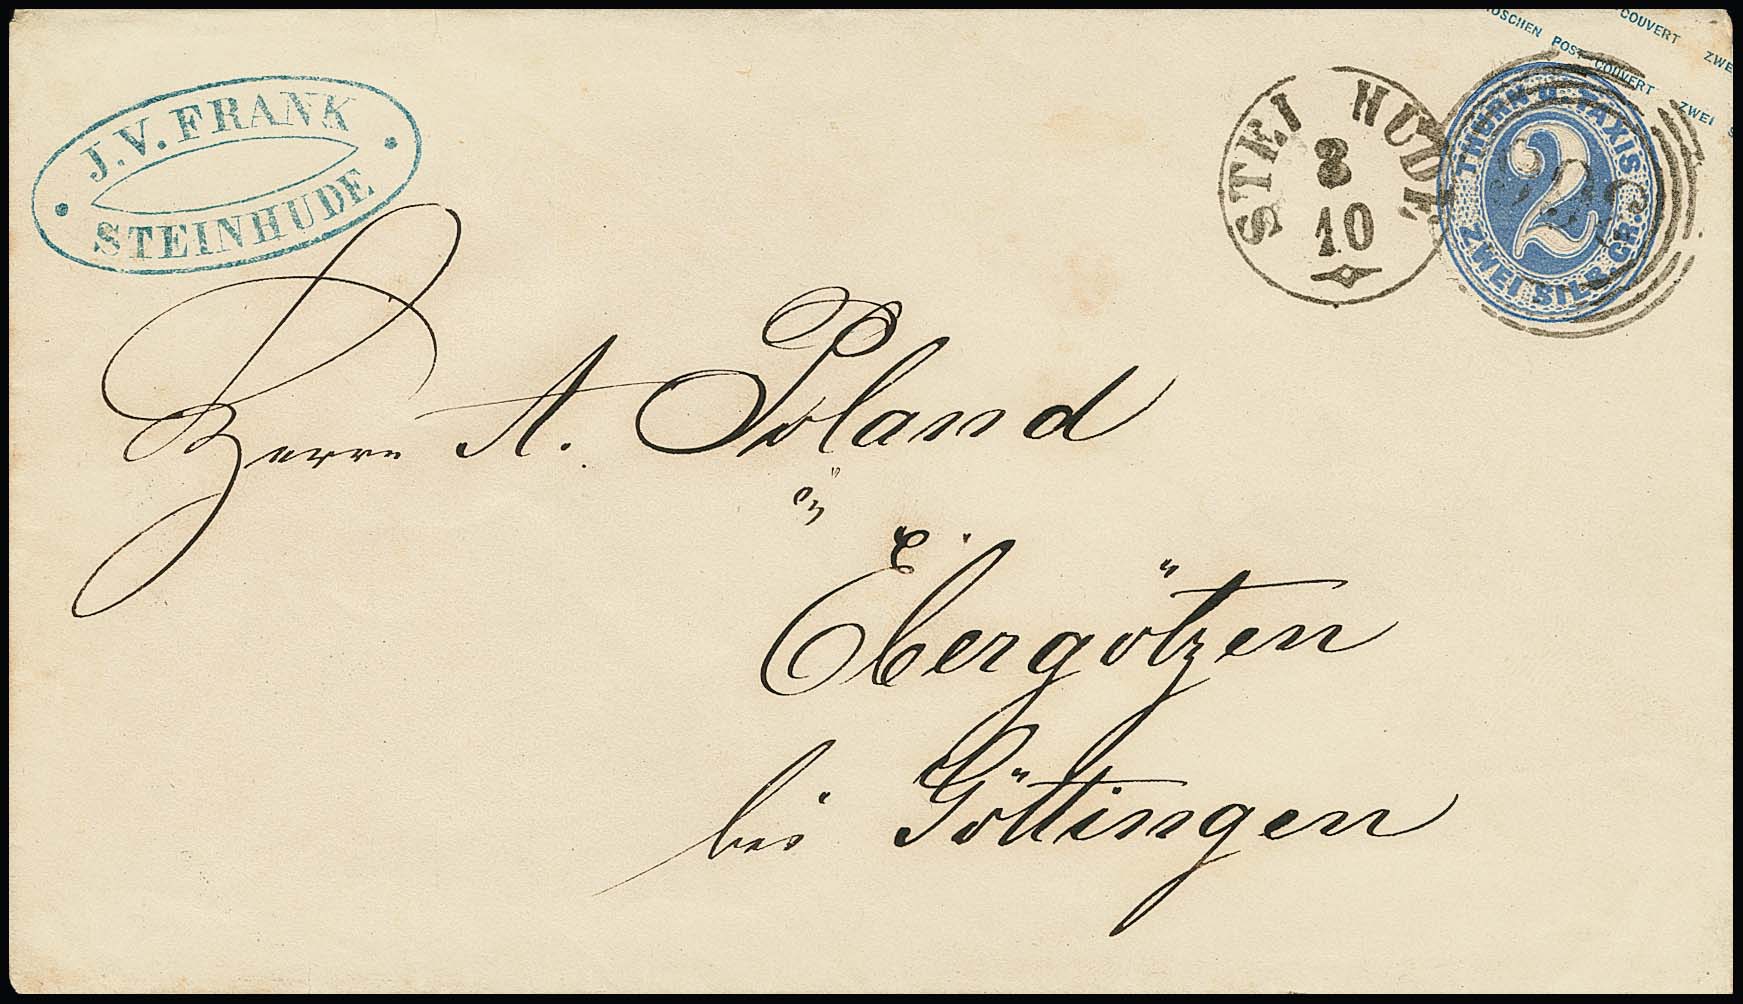 J. V. FRANK
STEINHUDE
STEI HUDE
8
10
THURN U. TAXIS
2
ZWEI SILB. GR.
OSCHEN POST COUVERT ZWEI S
COUVERT ZWE
Herrn A. Poland
in
Ebergötzen
bei Göttingen